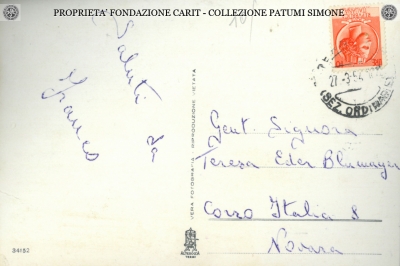 PROPRIETA' FONDAZIONE CARIT - COLLEZIONE PATUMI SIMONE
Saluti da
Franco
27-3-54
(SEZ. ORDINARIE)
Gent. Signora
Teresa Eder Blumayer
Corso Italia 8
Novara
VERA FOTOGRAFIA - RIPRODUZIONE VIETATA
34182